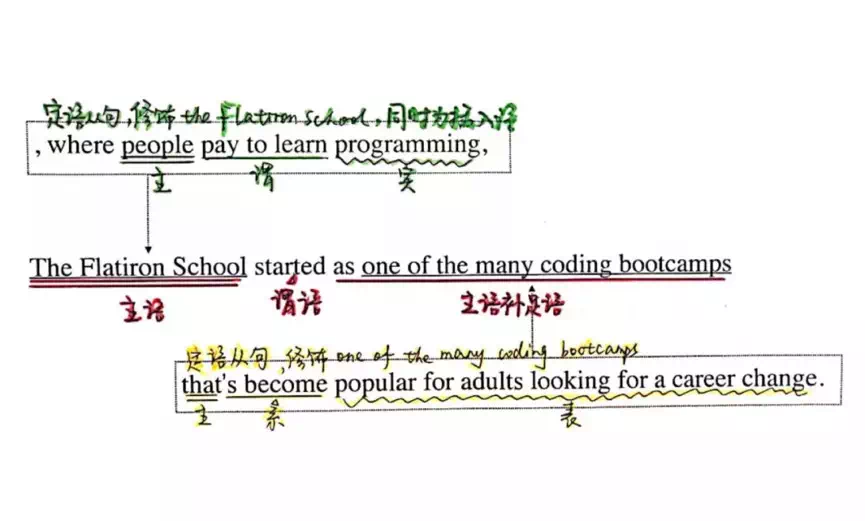 定语从句,修饰the Flatiron School,同时为插入语
, where people pay to learn programming,
主 谓 宾
The Flatiron School started as one of the many coding bootcamps
主语 谓语 主语补足语
定语从句,修饰one of the many coding bootcamps
that's become popular for adults looking for a career change.
主 系 表